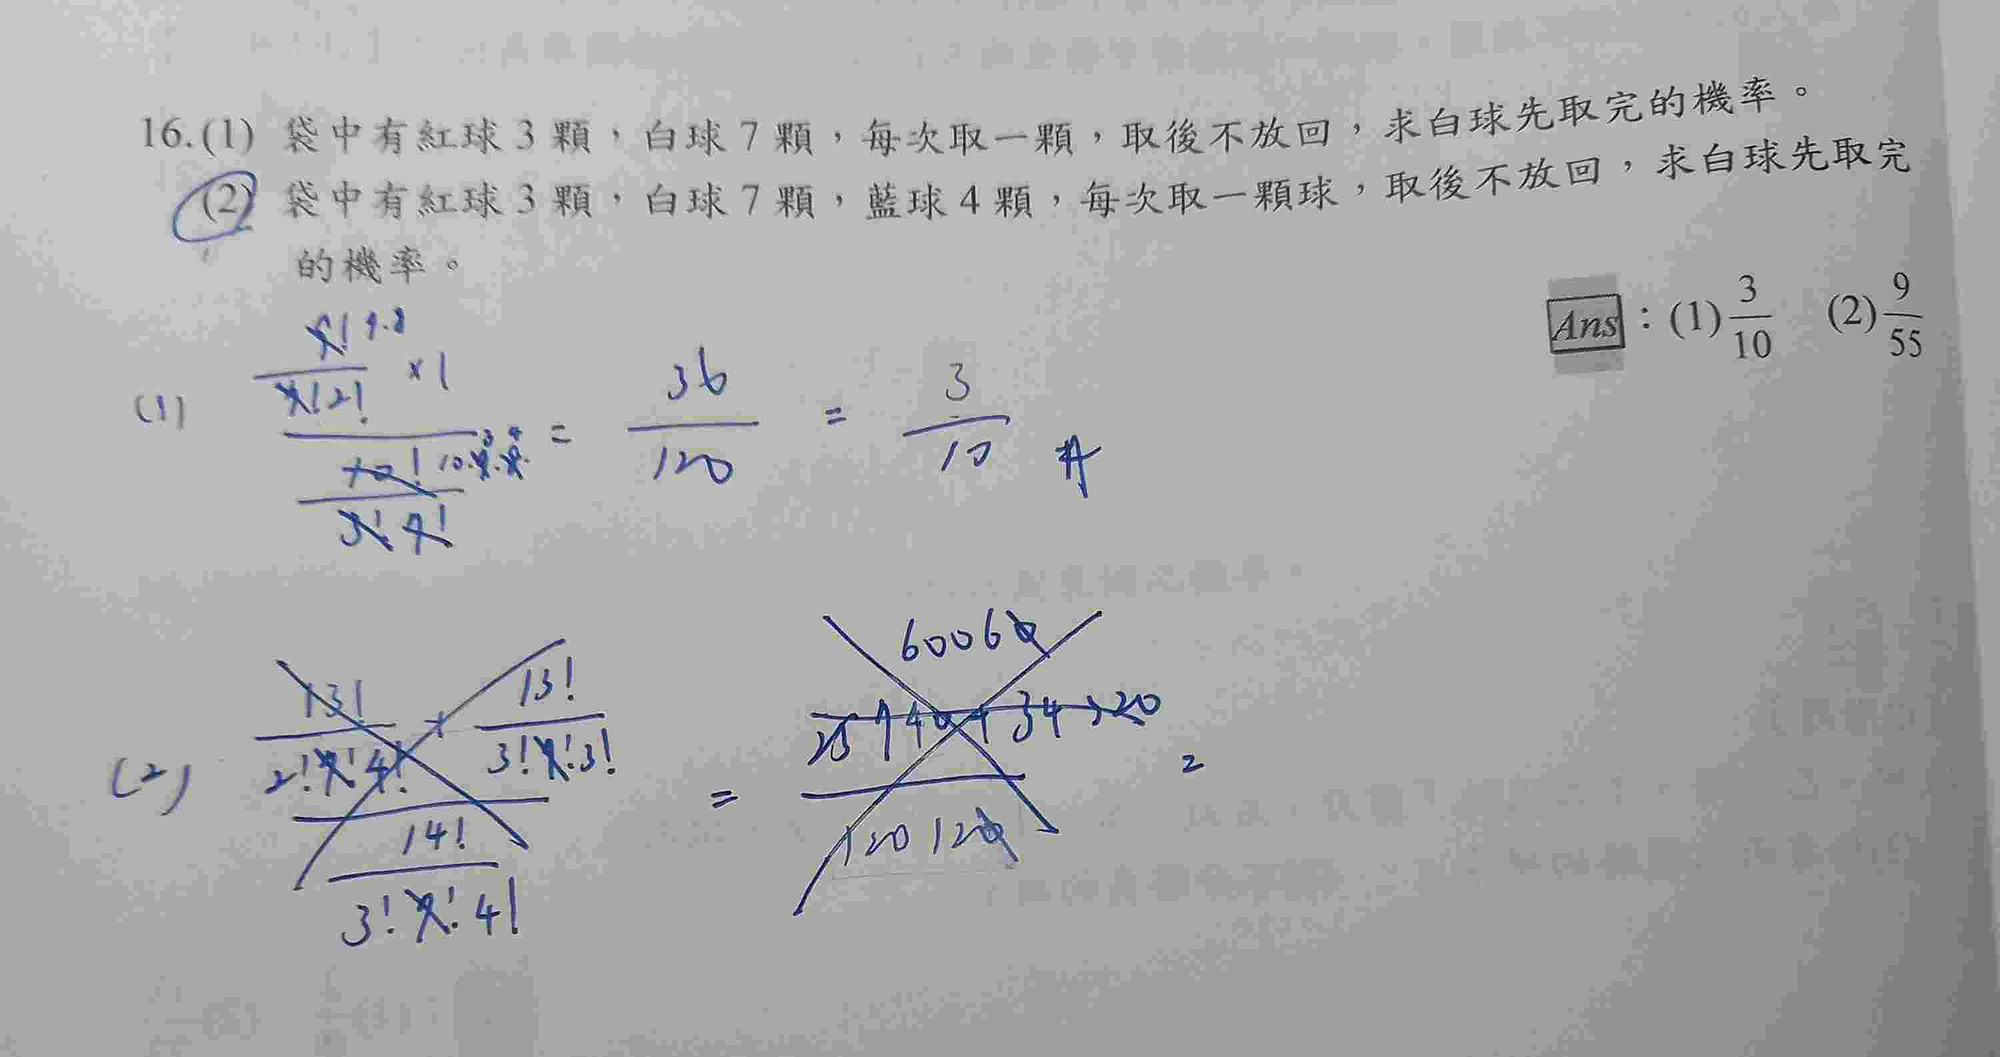 16.(1) 袋中有紅球 3 顆，白球 7 顆，每次取一顆，取後不放回，求白球先取完的機率。
(2) 袋中有紅球 3 顆，白球 7 顆，藍球 4 顆，每次取一顆球，取後不放回，求白球先取完
的機率。
Ans：(1) 3/10 (2) 9/55
(1) 9·8 / 2! ×1
10! 10·9·8·
3! 7!
= 36/120 = 3/10
(2) 13! / 2! 7! 4! + 13! / 3! 7! 3!
14! / 3! 7! 4!
= 60060
120120
=